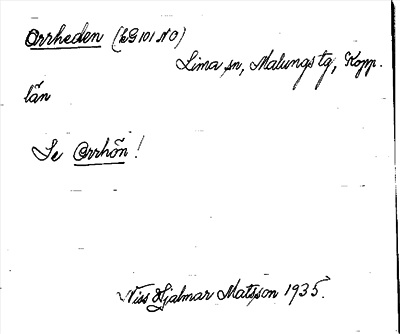 Orrheden (LG 101 NO)
Lima sn, Malungs tg, Kopp.
län
Se Orrhön!
Niss Hjalmar Matsson 1935.